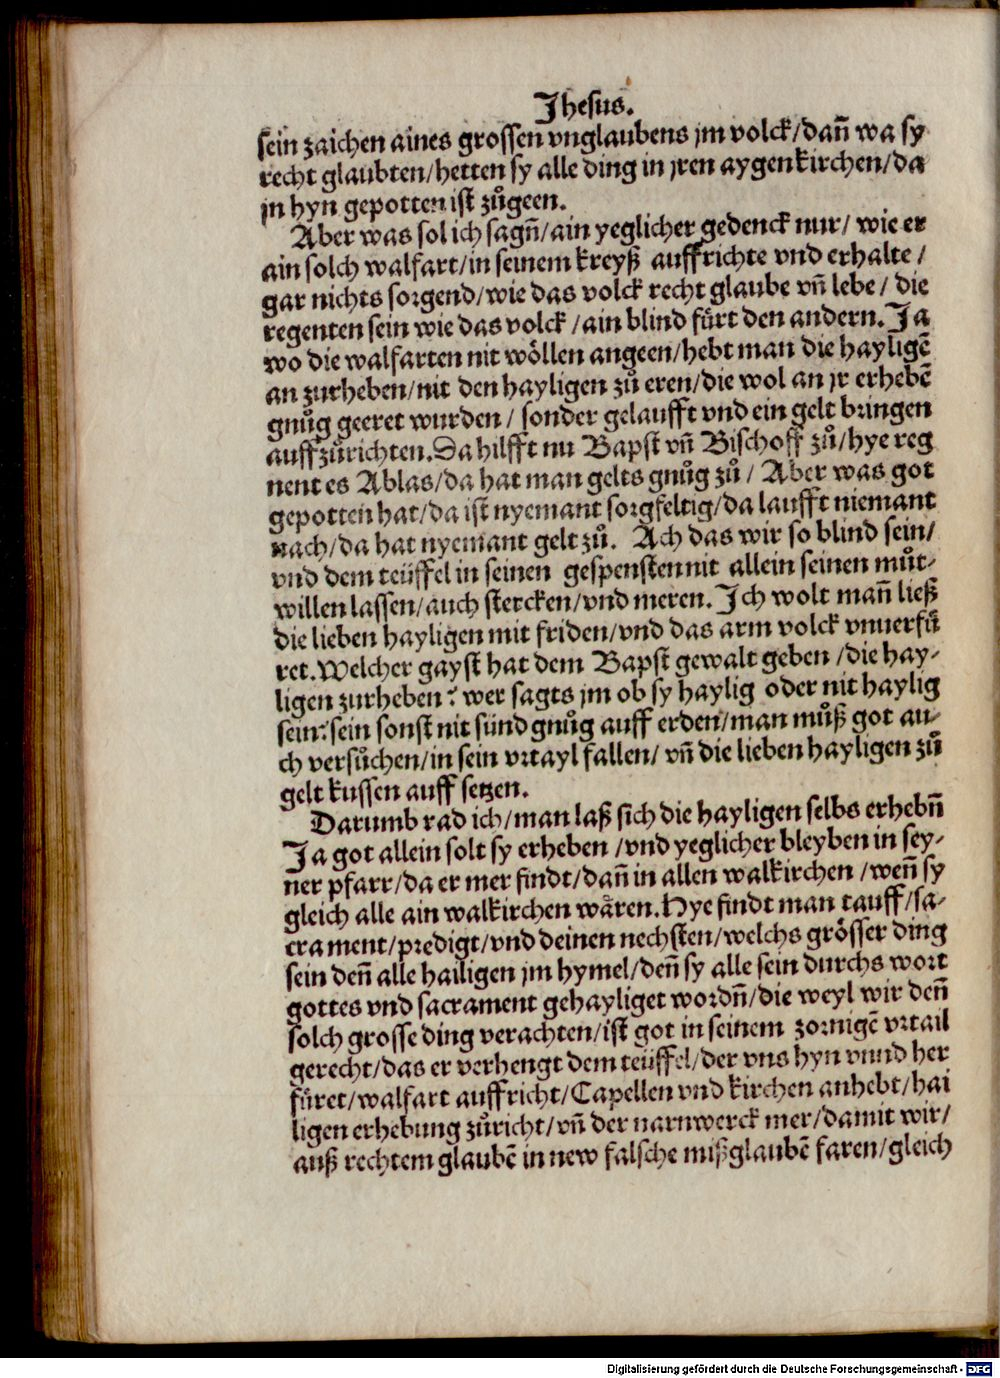 Jhesus.
sein zaichen aines grossen vnglaubens jm volck/dañ wa sy
recht glaubten/hetten sy alle ding in jren aygen kirchen/da
jn hyn gepotten ist zůgeen.
Aber was sol ich sagñ/ain yeglicher gedenck nur/ wie er
ain solch walfart/in seinem kreyß auffrichte vnd erhalte/
gar nichts sorgend/wie das volck recht glaube vñ lebe/ die
regenten sein wie das volck/ain blind fůrt den andern. Ja
wo die walfarten nit wöllen angeen/hebt man die hayligē
an zurheben/nit den hayligen zů eren/die wol an jr erhebē
gnůg geeret wurden/ sonder gelaufft vnd ein gelt bringen
auffzůrichten. Da hilfft nu Bapst vñ Bischoff zů/hye reg
nent es Ablas/da hat man gelts gnůg zů/ Aber was got
gepotten hat/da ist nyemant sorgfeltig/da laufft niemant
nach/da hat nyemant gelt zů. Ach das wir so blind sein/
vnd dem teüffel in seinen gespensten nit allein seinen můt-
willen lassen/auch stercken/vnd meren. Ich wolt mañ ließ
die lieben hayligen mit friden/vnd das arm volck vnuerfů
ret. Welcher gayst hat dem Bapst gewalt geben/die hay-
ligen zurheben? wer sagts jm ob sy haylig oder nit haylig
sein? sein sonst nit sünd gnůg auff erden/man můß got au-
ch versůchen/in sein vrtayl fallen/ vñ die lieben hayligen zů
gelt kussen auff setzen.
Darumb rad ich/man laß sich die hayligen selbs erhebñ
Ja got allein solt sy erheben/vnd yeglicher bleyben in sey-
ner pfarr/da er mer findt/dañ in allen walkirchen/weñ sy
gleich alle ain walkirchen wären. Hye findt man tauff/sa-
crament/predigt/vnd deinen nechsten/welchs grösser ding
sein deñ alle hailigen jm hymel/deñ sy alle sein durchs wort
gottes vnd sacrament gehayliget wordñ/die weyl wir deñ
solch grosse ding verachten/ist got in seinem zornigē vrtail
gerecht/das er verhengt dem teüffel/der vns hyn vnnd her
füret/walfart auffricht/Capellen vnd kirchen anhebt/hai
ligen erhebung zůricht/vñ der narnwerck mer/damit wir/
auß rechtem glaubē in new falsche mißglaubē faren/gleich
Digitalisierung gefördert durch die Deutsche Forschungsgemeinschaft - DFG